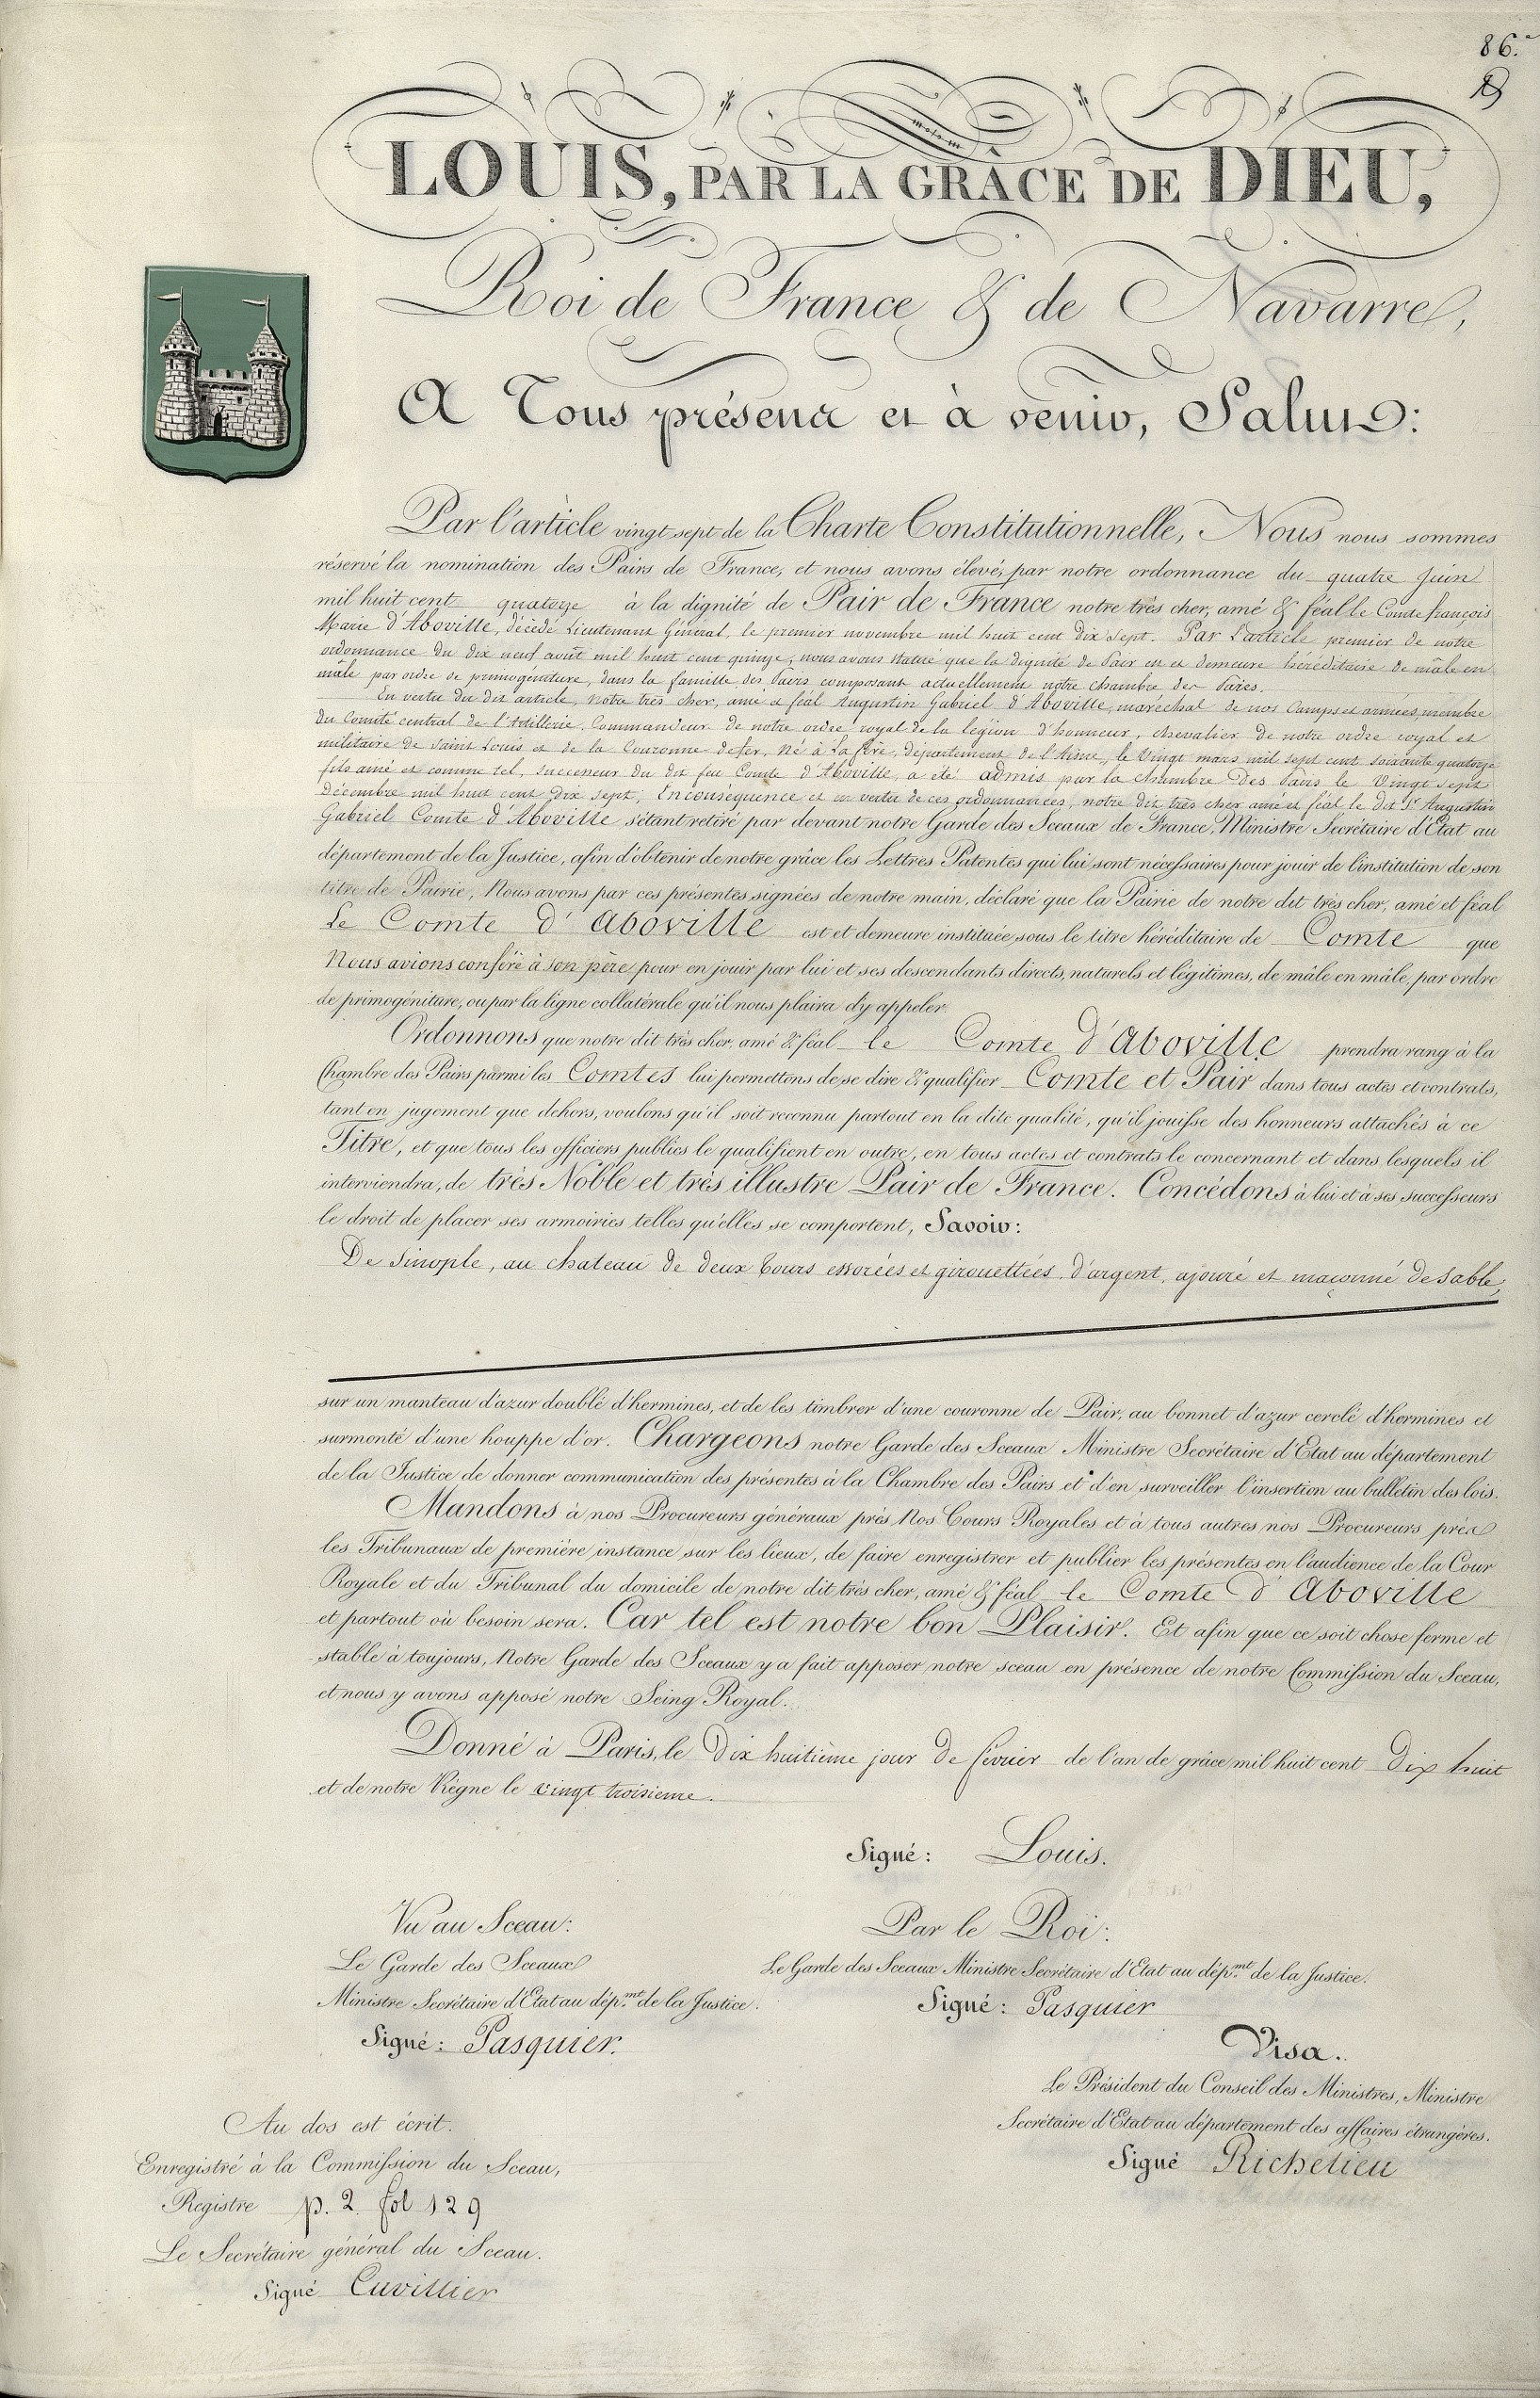 86.e
LOUIS, PAR LA GRÂCE DE DIEU,
Roi de France & de Navarre,
A Tous présens et à venir, Salut:
Par l'article vingt sept de la Charte Constitutionnelle, Nous nous sommes
réservé la nomination des Pairs de France, et nous avons élevé, par notre ordonnance du quatre Juin
mil huit cent quatorze à la dignité de Pair de France notre très cher, amé & féal le Comte françois
Marie d'Aboville, décédé Lieutenant Général, le premier novembre mil huit cent dix sept. Par L'article premier de notre
ordonnance du dix neuf août mil huit cent quinze, nous avons statué que la dignité de Pair est et demeure héréditaire de mâle en
mâle par ordre de primogéniture, dans la famille des Pairs composant actuellement notre chambre des Pairs.
En vertu du dit article, notre très cher, amé et féal Augustin Gabriel d'Aboville, maréchal de nos Camps et armées, membre
du Comité central de l'Artillerie, Commandeur de notre ordre royal de la légion d'honneur, chevalier de notre ordre royal et
militaire de Saint Louis et de la Couronne defer, Né à La fère, département de l'Aisne, le Vingt mars mil sept cent soixante quatorze
fils ainé et comme tel, successeur du dit feu Comte d'Aboville, a été admis par la chambre Des Pairs le Vingt sept
Décembre mil huit cent dix sept, Enconséquence et en vertu de ces ordonnances, notre dit très cher amé et féal le dit Sr. Augustin
Gabriel Comte d'Aboville s'étant retiré par devant notre Garde des Sceaux de France, Ministre Secrétaire d'Etat au
département de la Justice, afin d'obtenir de notre grâce les Lettres Patentes qui lui sont nécessaires pour jouir de l'institution de son
titre de Pairie, Nous avons par ces présentes signées de notre main, déclaré que la Pairie de notre dit très cher, amé et féal
Le Comte d'Aboville est et demeure instituée sous le titre héréditaire de Comte que
Nous avions conféré à son père pour en jouir par lui et ses descendants directs, naturels et légitimes, de mâle en mâle, par ordre
de primogéniture, ou par la ligne collatérale qu'il nous plaira d'y appeler.
Ordonnons que notre dit très cher, amé & féal le Comte d'Aboville prendra rang à la
Chambre des Pairs parmi les Comtes lui permettons de se dire & qualifier Comte et Pair dans tous actes et contrats,
tant en jugement que dehors, voulons qu'il soit reconnu partout en la dite qualité, qu'il jouisse des honneurs attachés à ce
Titre, et que tous les officiers publics le qualifient en outre, en tous actes et contrats le concernant et dans lesquels il
interviendra, de très Noble et très illustre Pair de France. Concédons à lui et à ses successeurs
le droit de placer ses armoiries telles qu'elles se comportent, Savoir:
De Sinople, au chateau de deux tours essorées et girouettées d'argent, ajouré et maçonné de sable,
sur un manteau d'azur doublé d'hermines, et de les timbrer d'une couronne de Pair, au bonnet d'azur cerclé d'hermines et
surmonté d'une houppe d'or. Chargeons notre Garde des Sceaux Ministre Secrétaire d'Etat au département
de la Justice de donner communication des présentes à la Chambre des Pairs et d'en surveiller l'insertion au bulletin des lois.
Mandons à nos Procureurs généraux près Nos Cours Royales et à tous autres nos Procureurs près
les Tribunaux de première instance sur les lieux, de faire enregistrer et publier les présentes en l'audience de la Cour
Royale et du Tribunal du domicile de notre dit très cher, amé & féal le Comte d'Aboville
et partout où besoin sera. Car tel est notre bon Plaisir. Et afin que ce soit chose ferme et
stable à toujours, Notre Garde des Sceaux y a fait apposer notre sceau en présence de notre Commission du Sceau,
et nous y avons apposé notre Seing Royal.
Donné à Paris, le Dix huitième jour de février de l'an de grâce mil huit cent Dix huit
et de notre Règne le vingt troisième.
Signé: Louis.
Vu au Sceau:
Le Garde des Sceaux
Ministre Secrétaire d'Etat au dép.mt de la Justice.
Signé: Pasquier.
Par le Roi:
Le Garde des Sceaux Ministre Secrétaire d'Etat au dép.mt de la Justice.
Signé: Pasquier
Visa.
Le Président du Conseil des Ministres, Ministre
Secrétaire d'Etat au département des affaires étrangères.
Signé Richelieu
Au dos est écrit.
Enregistré à la Commission du Sceau,
Registre p. 2 fol 129
Le Secrétaire général du Sceau.
Signé Cuvillier